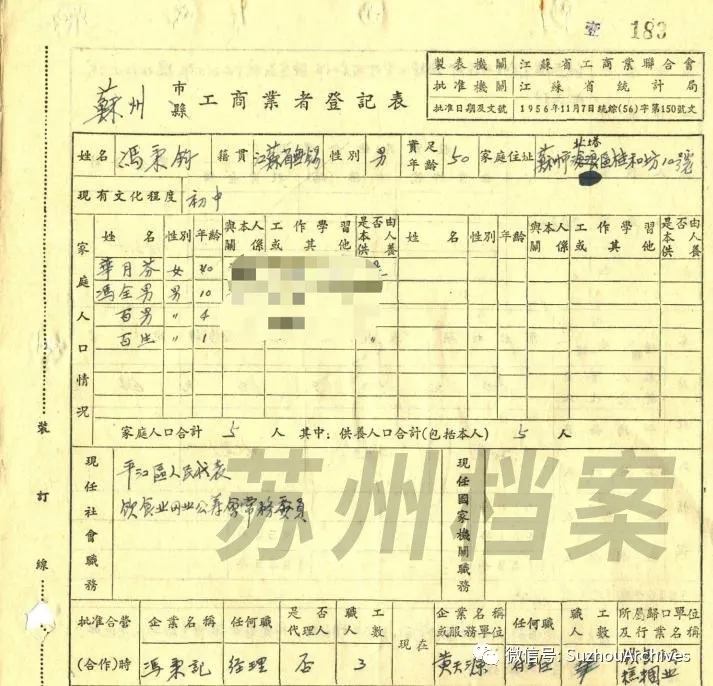 壹 183
製表機關 江蘇省工商業聯合會
批准機關 江蘇省統計局
批准日期及文號 1956年11月7日統綜(56)字第150號文
蘇州 市縣 工商業者登記表
姓名 馮秉鈞 籍貫 江蘇省無錫 性別 男 實足年齡 50 家庭住址 蘇州市北塔區桂和坊10號
現有文化程度 初中
家庭人口情況
姓名 性別 年齡 與本人關係 工作學習或其他 是否由本人供養 姓名 性別 年齡 與本人關係 工作學習或其他 是否由本人供養
華月芬 女 40
馮全男 男 10
百男 〃 4
百生 〃 1 〃
家庭人口合計 5 人 其中：供養人口合計(包括本人) 5 人
現任社會職務 平江區人民代表
飲食業同業公會常務委員
現任國家機關職務
苏州档案
裝訂線
批准合營(合作)時 企業名稱 任何職 是否代理人 職工人數 現在 企業名稱或服務單位 任何職 職工人數 所屬歸口單位及行業名稱
馮秉記 經理 否 3 黃天源 糕糰業
微信号: SuzhouArchives